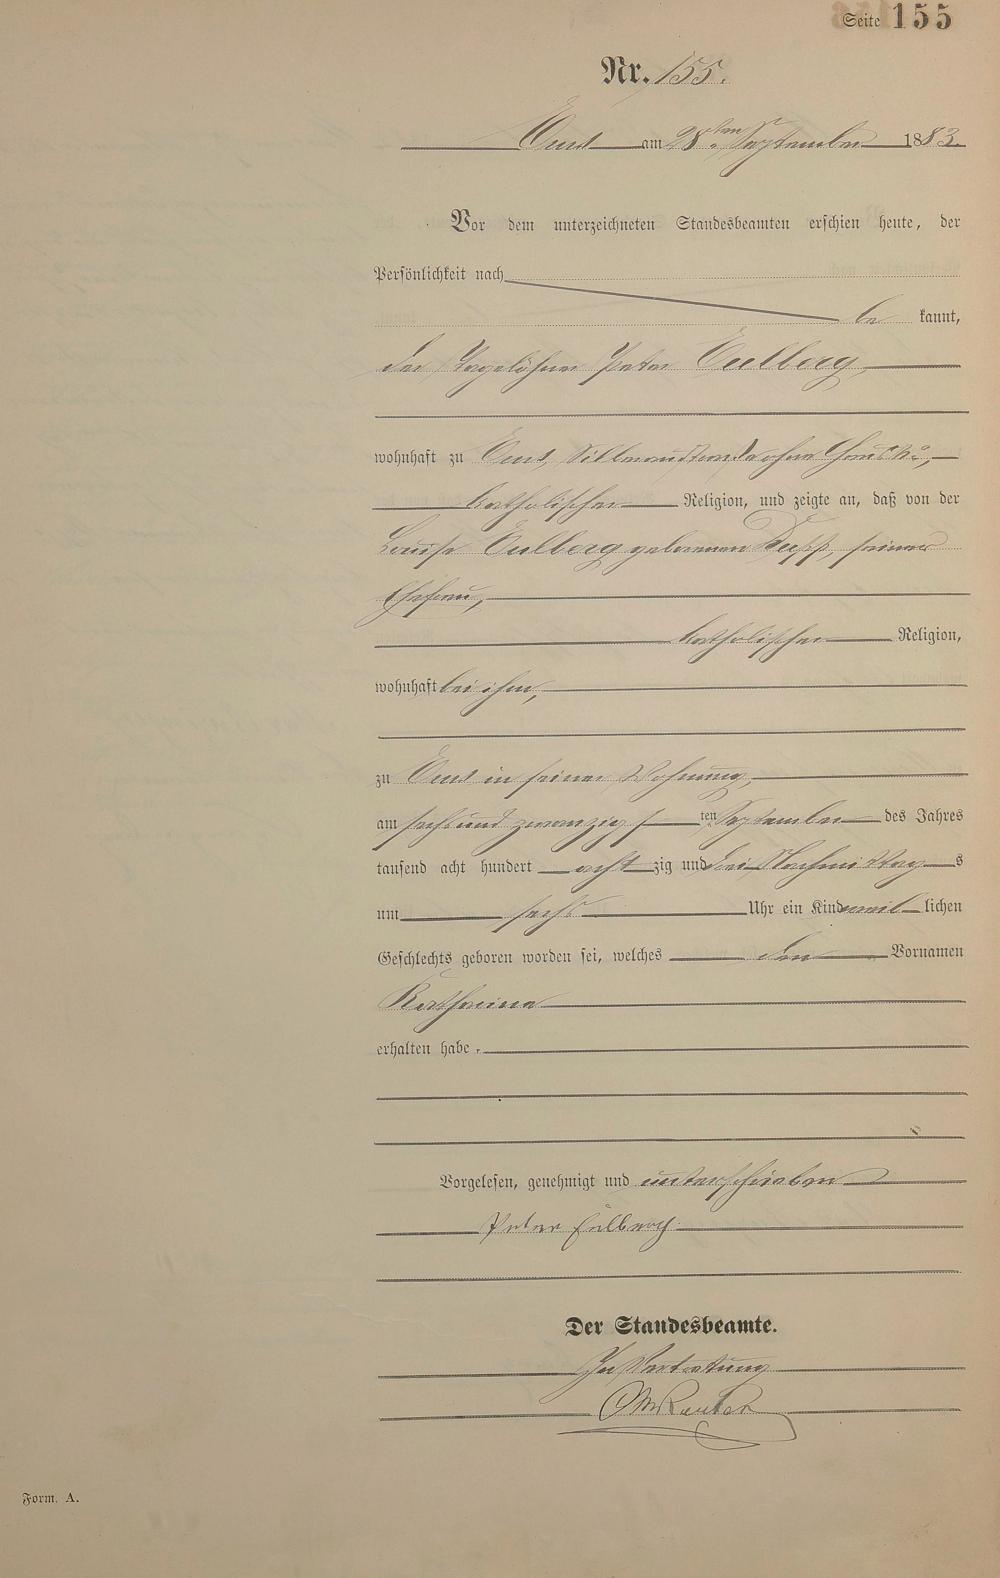 Seite 155
Nr. 155.
Ems am 28ten September 1883.
Vor dem unterzeichneten Standesbeamten erschien heute, der
Persönlichkeit nach
be kannt,
der Tagelöhner Peter Eulberg,
wohnhaft zu Ems,
katholischer Religion, und zeigte an, daß von der
Louise Eulberg geborenen seiner
Ehefrau,
katholischer Religion,
wohnhaft bei ihm,
zu Ems in seiner Wohnung,
am sechs und zwanzigs ten September des Jahres
tausend acht hundert acht zig und drei Nachmittag s
um sechs Uhr ein Kind weib lichen
Geschlechts geboren worden sei, welches den Vornamen
Katharina
erhalten habe.
Vorgelesen, genehmigt und unterschrieben
Peter Eulberg
Der Standesbeamte.
In Vertretung
Form. A.